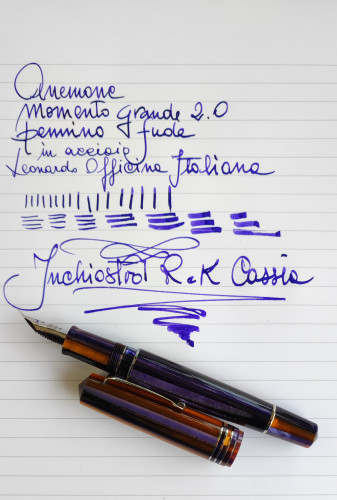 Anemone
Momento Grande 2.0
pennino fude
in acciaio
Leonardo Officina Italiana
Inchiostro R&K Cassia